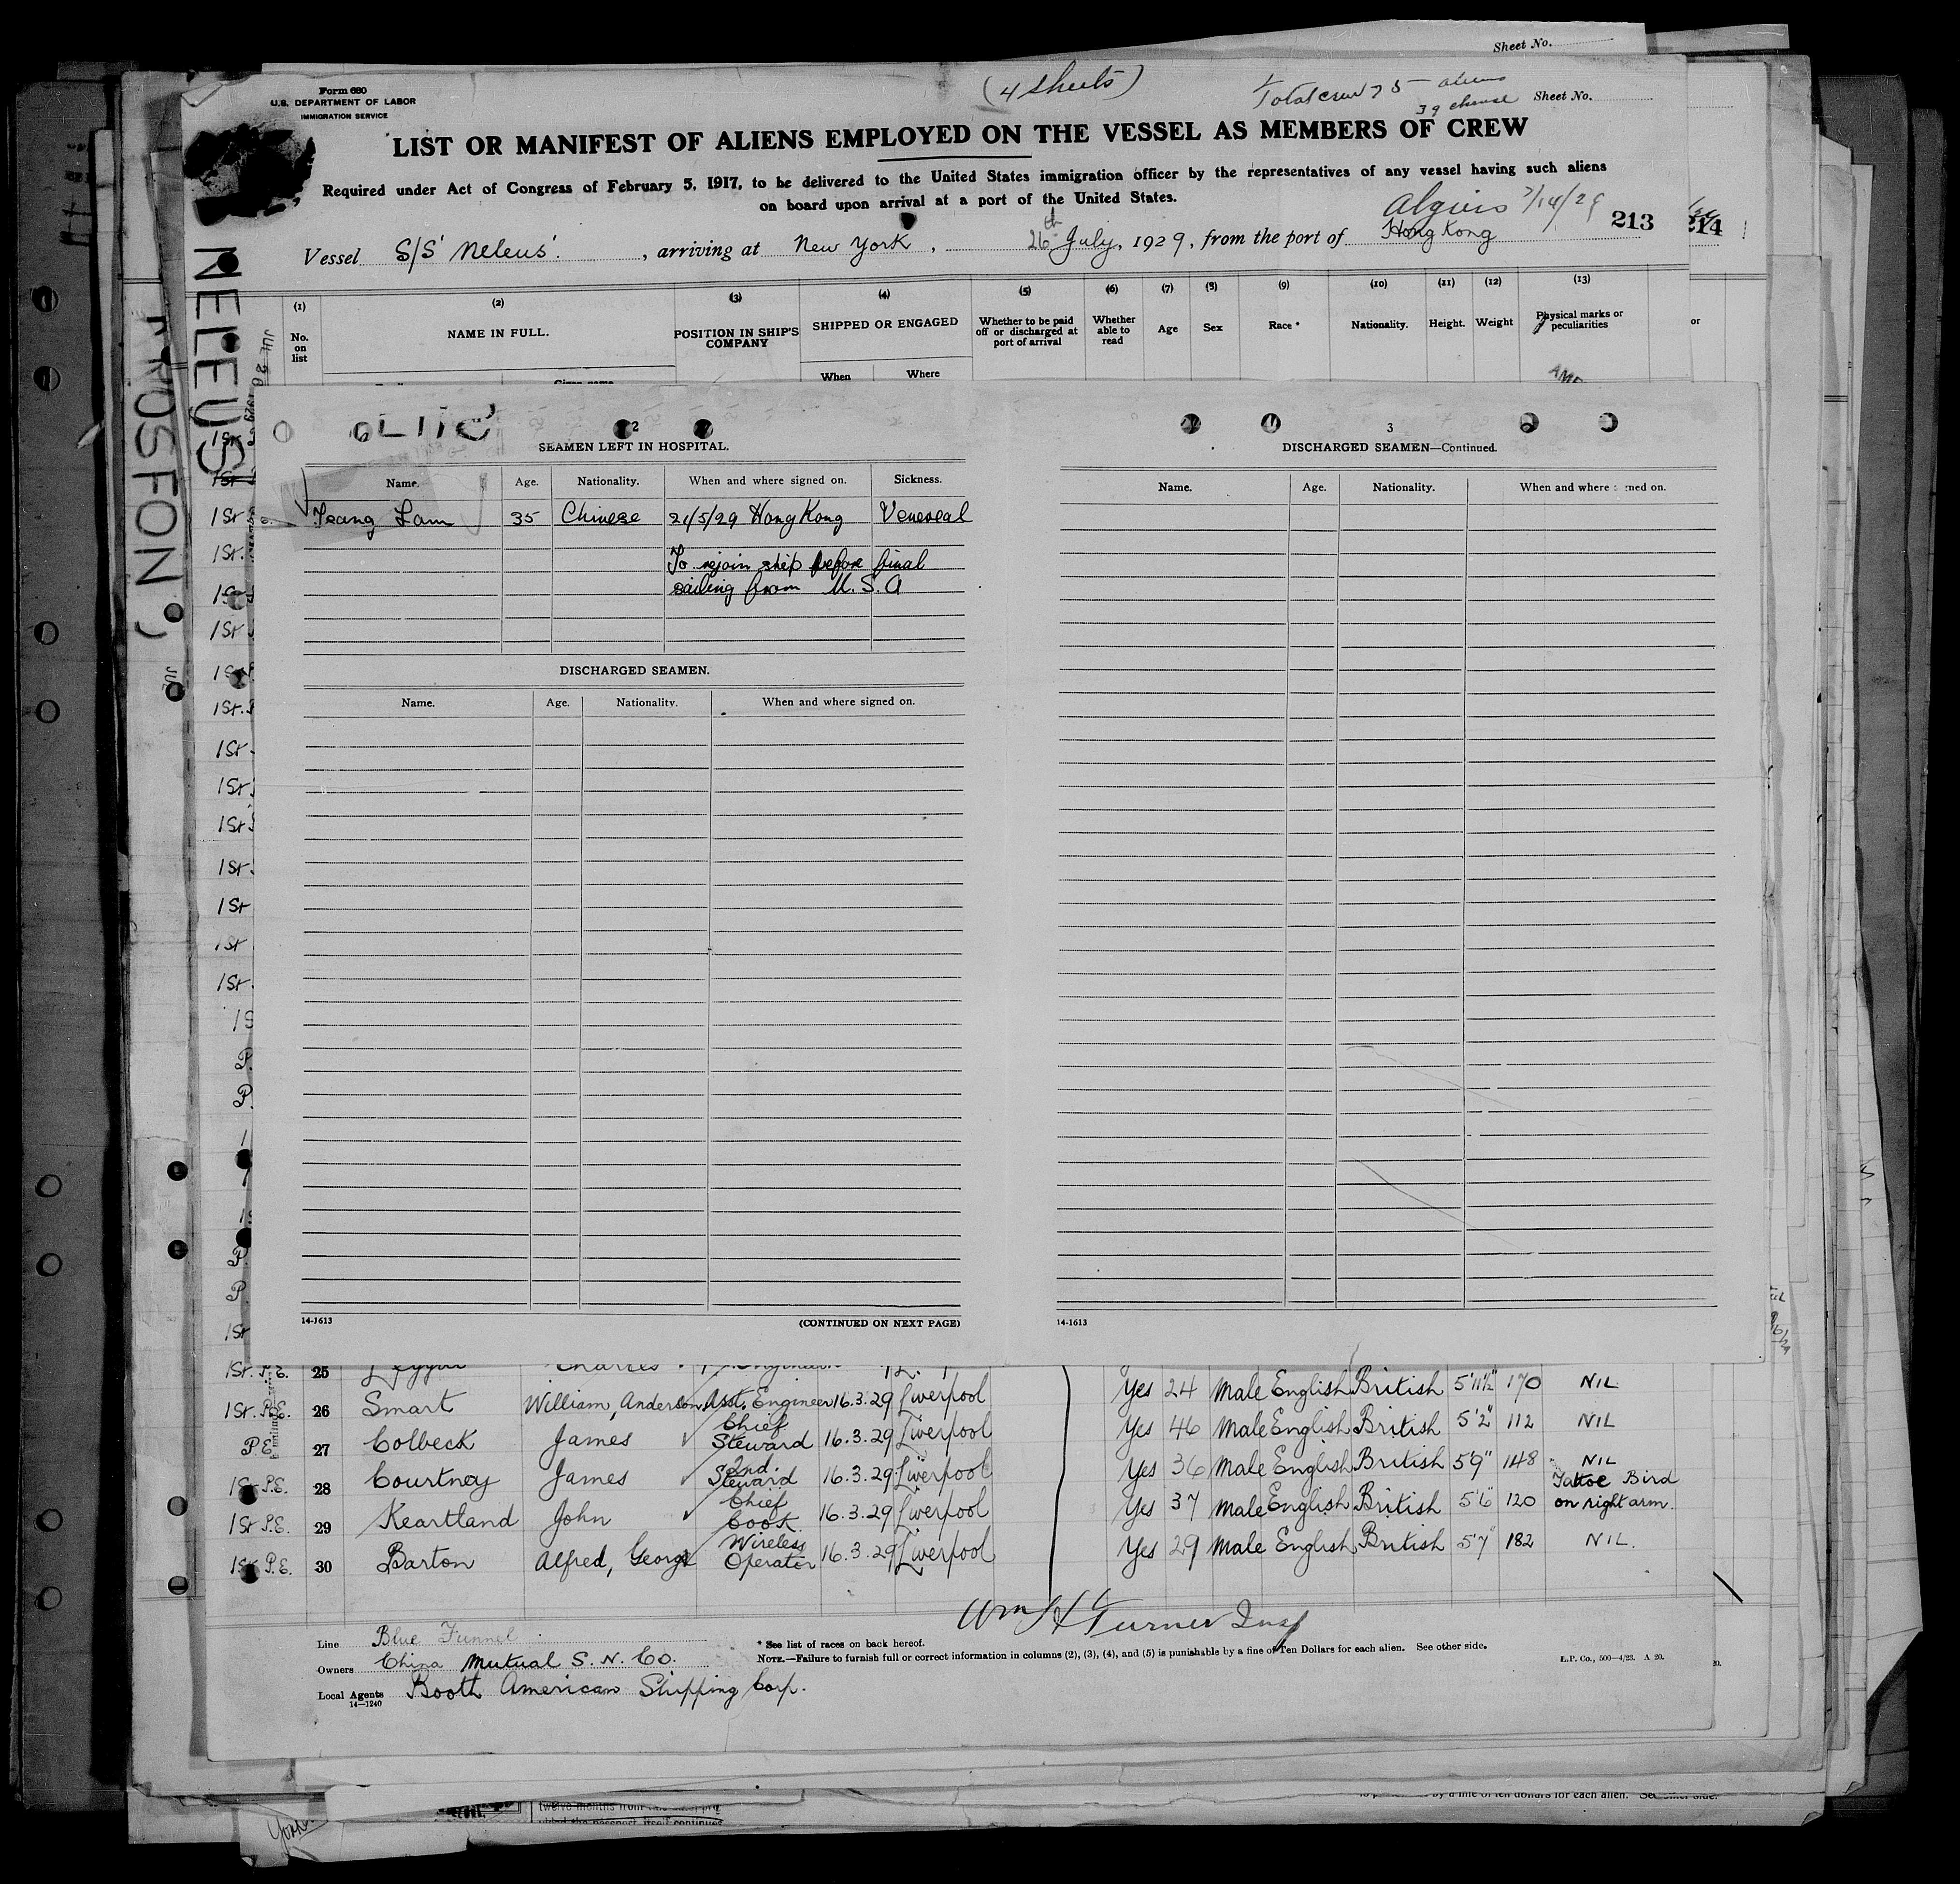 Sheet No.
Form 680
U.S. DEPARTMENT OF LABOR
IMMIGRATION SERVICE
(4 sheets)
Total crew 75 aliens
39 chinese
Sheet No.
LIST OR MANIFEST OF ALIENS EMPLOYED ON THE VESSEL AS MEMBERS OF CREW
Required under Act of Congress of February 5, 1917, to be delivered to the United States immigration officer by the representatives of any vessel having such aliens
on board upon arrival at a port of the United States.
Algiers 7/14/29
213
214
Vessel S/S 'Neleus'. , arriving at New York , 26th July, 1929, from the port of Hong Kong
NELEUS
(1) (2) (3) (4) (5) (6) (7) (8) (9) (10) (11) (12) (13)
No. on list NAME IN FULL. POSITION IN SHIP'S COMPANY SHIPPED OR ENGAGED Whether to be paid off or discharged at port of arrival Whether able to read Age Sex Race * Nationality. Height. Weight Physical marks or peculiarities
or
Given name When Where
2
SEAMEN LEFT IN HOSPITAL.
Name. Age. Nationality. When and where signed on. Sickness.
Tsang Lam 35 Chinese 21/5/29 Hong Kong Venereal
To rejoin ship before final
sailing from U.S.A
DISCHARGED SEAMEN.
Name. Age. Nationality. When and where signed on.
14-1613
(CONTINUED ON NEXT PAGE)
3
DISCHARGED SEAMEN—Continued.
Name. Age. Nationality. When and where signed on.
14-1613
1St. P.E. 25 Charles
1St. P.E. 26 Smart William, Anderson Asst. Engineer 16.3.29 Liverpool Yes 24 Male English British 5'11½" 170 NIL
P.E. 27 Colbeck James Chief Steward 16.3.29 Liverpool Yes 46 Male English British 5'2" 112 NIL
1St P.E. 28 Courtney James 2nd. Steward 16.3.29 Liverpool Yes 36 Male English British 5'9" 148 NIL
1St P.E. 29 Keartland John Chief Cook 16.3.29 Liverpool Yes 37 Male English British 5'6" 120 Tattoe Bird on right arm.
1St P.E. 30 Barton Alfred, George Wireless Operator 16.3.29 Liverpool Yes 29 Male English British 5'7" 182 NIL.
Wm H Turner Insp
Line Blue Funnel
Owners China Mutual S. N. Co.
Local Agents Booth American Shipping Corp.
14—1240
* See list of races on back hereof.
NOTE.—Failure to furnish full or correct information in columns (2), (3), (4), and (5) is punishable by a fine of Ten Dollars for each alien. See other side.
L.P. Co., 500—4/23. A 20.